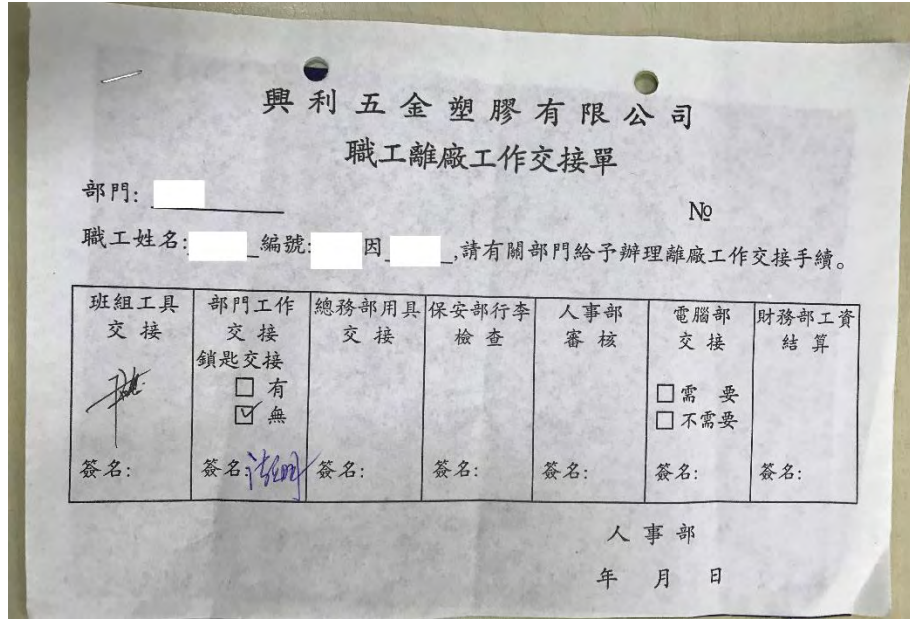 興利五金塑膠有限公司
職工離廠工作交接單
部門:
№
職工姓名: 編號: 因 ,請有關部門給予辦理離廠工作交接手續。
班組工具
交接
部門工作
交接
鎖匙交接
□ 有
☑ 無
總務部用具
交接
保安部行李
檢查
人事部
審核
電腦部
交接
□ 需要
□ 不需要
財務部工資
結算
簽名: 簽名: 簽名: 簽名: 簽名: 簽名: 簽名:
人事部
年 月 日